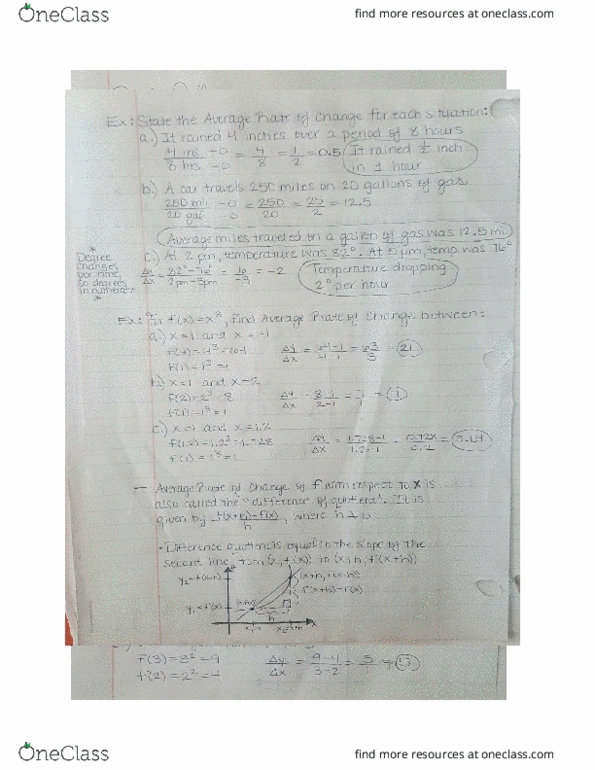 OneClass
find more resources at oneclass.com
Ex: State the Average Rate of Change for each situation:
a.) It rained 4 inches over a period of 8 hours
4 ins. -0 = 4 = 1 = 0.5 It rained 1/2 inch
8 hrs -0 8 2 in 1 hour
b.) A car travels 250 miles on 20 gallons of gas
250 mi. -0 = 250 = 25 = 12.5
20 gal -0 20 2
Average miles traveled on a gallon of gas was 12.5 mi.
c.) At 2 pm, temperature was 82°. At 5 pm, temp. was 76°
* Degree changes per time, so degrees in numerator *
Δy = 82°-76° = 6 = -2 Temperature dropping
Δx 2pm-5pm -3 2° per hour
Ex: for f(x)=x³, find Average Rate of Change between:
a.) x=1 and x=4
f(4)=4³=64 Δy = 64-1 = 63 = 21
f(1)=1³=1 Δx 4-1 3
b.) x=1 and x=2
f(2)=2³=8 Δy = 8-1 = 7
f(1)=1³=1 Δx 2-1 1
c.) x=1 and x=1.2
f(1.2)=1.2³=1.728 Δy = 1.728-1 = 0.728 = 3.64
f(1)=1³=1 Δx 1.2-1 0.2
- Average Rate of Change of f with respect to x is
also called the "difference of quotient". It is
given by f(x+h)-f(x), where h
h
• Difference quotient is equal to the slope by the
secant line from (x, f(x)) to (x+h, f(x+h))
y₂=f(x+h)
(x+h, f(x+h))
f(x+h)-f(x)
y₁=f(x)
h
f(3)=3²=9 Δy = 9-4 = 5
f(2)=2²=4 Δx 3-2
OneClass
find more resources at oneclass.com